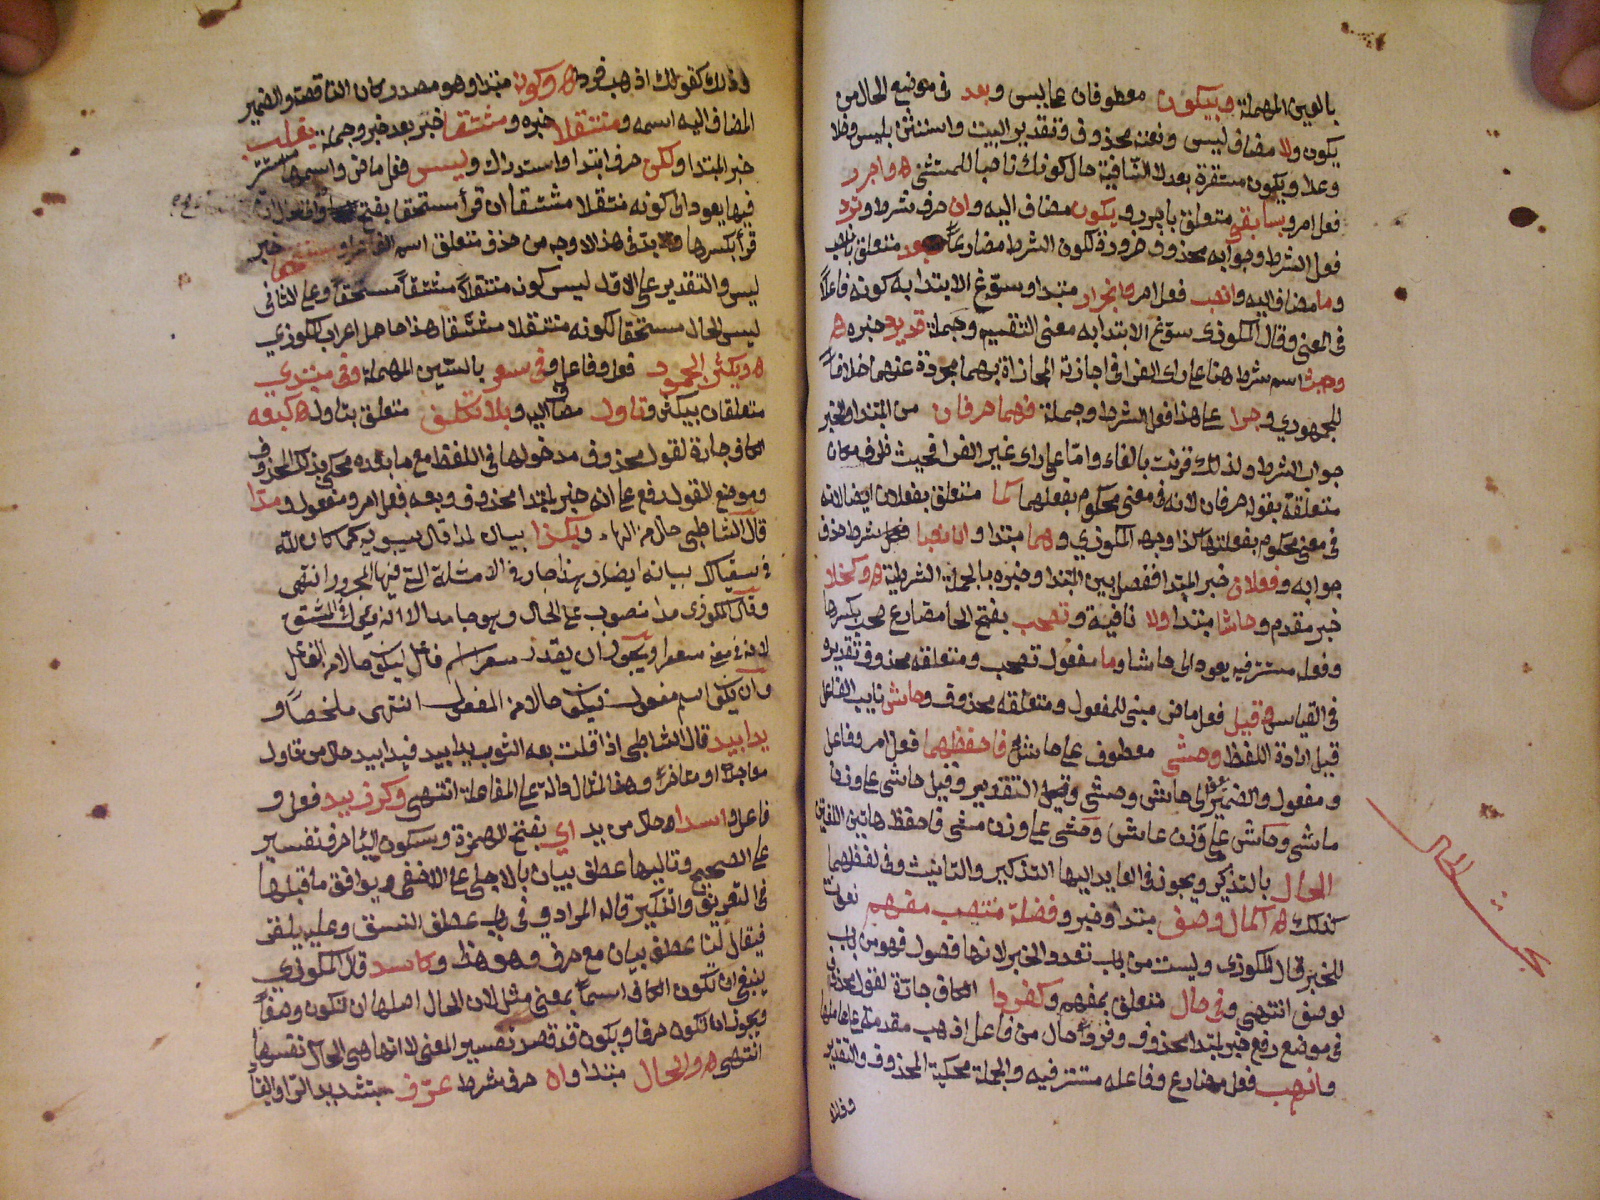 بالعين المهملة وبيكون معطوفان على بليس وبعد في موضع الحال من
يكون ولا مضاف ليس ونعته محذوف وتقدير البيت واستثن بليس وخلا
وعدا وبيكون مستقرة بعد لا النافية حال كونك ناصبا للمستثنى ه واجرر
فعل امر وبسابقي متعلق باجرر ويكون مضاف اليه وان حرف شرط وترد
فعل الشرط وجوابه محذوف ضرورة لكون الشرط مضارعا وبعد متعلق بانصب
وما مضاف اليه وانصب فعل امر وانجرار مبتدا وسوغ الابتدا به كونه فاعلا
في المعنى وقال المكودي سوغ الابتدا به معنى التقسيم وجملة قد يرد خبره ه
وحيث اسم شرط هنا على راي الفرا في اجازته المجازاة بهما مجردة عن ما خلافا
للجمهور وجرا على هذا فعل الشرط وجملة فهما حرفان من المبتدا والخبر
جواب الشرط ولذلك قرنت بالفاء واما على راي غير الفرا فحيث ظرف مكان
متعلقة بقوله حرفان لانه في معنى محكوم بفعلهما كما متعلق بفعلان ايضا لانه
في معنى محكوم بفعليتهما كذا وجه المكودي وهما مبتدا وان نصبا فعل شرط حذف
جوابه وفعلان خبر المبتدا ففصل بين المبتدا وخبره بالجملة الشرطية ه وكخلا
خبر مقدم وحاشا مبتدا ولا نافية وتصحب بفتح الحا مضارع صحب بكسرها
وفعله مستتر فيه يعود الى حاشا وما مفعول تصحب ومتعلقه محذوف تقديره
في القياس وقيل فعل ماض مبني للمفعول ومتعلقه محذوف وحاش نايب الفاعل
قيل ارادة اللفظ وحشى معطوف على حاش فاحفظهما فعل امر وفاعل
ومفعول والضمير الى حاش وحشى وقيل التقدير وقيل حاشى على وزن
ماشى وحاش على وزن عاش وحشى على وزن مشى فاحفظ هاتين اللغتين
الحال بالتذكير ويجوز في العايد اليها التذكير والتانيث وفي لفظهما
كذلك ه الحال وصف مبتدا وخبر وفضلة منتصب مفهم نعوت
للخبر قال المكودي وليست من باب تعدد الخبر لانها فصول فهو من باب
لوصف انتهى وفي حال متعلق بمفهم وكفردا الكاف جارة لقول محذوف
في موضع رفع خبر لمبتدا محذوف وفردا حال من فاعل اذهب مقدمة على عاملها
واذهب فعل مضارع وفاعله مستتر فيه والجملة محكية المحذوف والتقدير
وذلك
بحث الحال
وذلك كقولك اذهب فردا ه وكونه مبتدا وهو مصدر كان الناقصة والضمير
المضاف اليه اسمه ومنتقلا خبره ومشتقا خبر بعد خبر وجملة يغلب
خبر المبتدا ولكن حرف ابتدا واستدراك وليس فعل ماض واسمها مستتر
فيها يعود الى كونه منتقلا مشتقا ان قرأ مستحقا بفتح
قرأ بكسرها ولا بد في هذا الاوجه من حذف متعلق اسم الفاعل ومستحقا خبر
ليس والتقدير على الاول ليس كونه منتقلا مشتقا مستحقا وعلى الثاني
ليس الحال مستحقا لكونه منتقلا مشتقا هذا حاصل اعراب المكودي
ه ويكثر الجمود فعل وفاعل وفي سعر بالسين المهملة وفي مبدي
متعلقان بيكثر وتاول مضاف اليه وبلا تكلف متعلق بتاول ه كبعه
الكاف جارة لقول محذوف مدخولها في اللفظ مع ما بعده محكي بذلك المحذوف
وموضع القول رفع على انه خبر لمبتدا محذوف وبعه فعل امر ومفعول ومدا
قال الشاطبي حال من الهاء وبكذا بيان لمدا قال سيبويه كما كان لك
في سقياك بيانه ايضا وهذا جار في الامثلة التي فيها المجرور انتهى
وقال المكودي مدا منصوب على الحال وهو جامد الا انه يؤول بالمشتق
لانه في معنى مسعرا ويجوز ان يقدر مسعرا اسم فاعل ليكون حالا من الفاعل
وان يكون اسم مفعول فيكون حالا من المفعول انتهى ملخصا و
يدا بيد قال الشاطبي اذا قلت بعه الثوب يدا بيد فيدا بيد حال من تاول
مواجلا او متاخرا وهذا المثال دالة على المفاعلة انتهى وكر زيد فعل و
فاعل واسدا حال من زيد اي بفتح الهمزة وسكون اليا حرف تفسير
على الصحيح وتاليها عطف بيان بالاجلى على الاخفى ويوافق ما قبلها
في التعريف والتنكير قاله المرادي في باب عطف النسق وعليه يلغى
فيقال لنا عطف بيان مع حرف وهو هذا وكاسد قال المكودي
ينبغي ان تكون الكاف اسما بمعنى مثل لان الحال اصلها ان تكون وصفا
ويجوز ان تكون حرفا ويكون قد قصد تفسير المعنى لا انها هي الحال نفسها
انتهى ه والحال مبتدا وان حرف شرط عرف بتشديد الرا والبنا